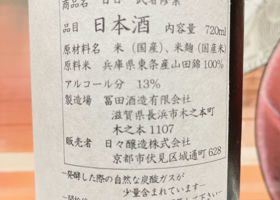 商品名 日日
品目 日本酒 内容量 720ml
原材料名 米(国産)、米麹(国産米)
原料米 兵庫県東条産山田錦100%
アルコール分 13%
製造場 冨田酒造有限会社
滋賀県長浜市木之本町
木之本 1107
販売者 日々醸造株式会社
京都市伏見区城通町628
—発酵した際の自然な炭酸ガスが
少量含まれています—